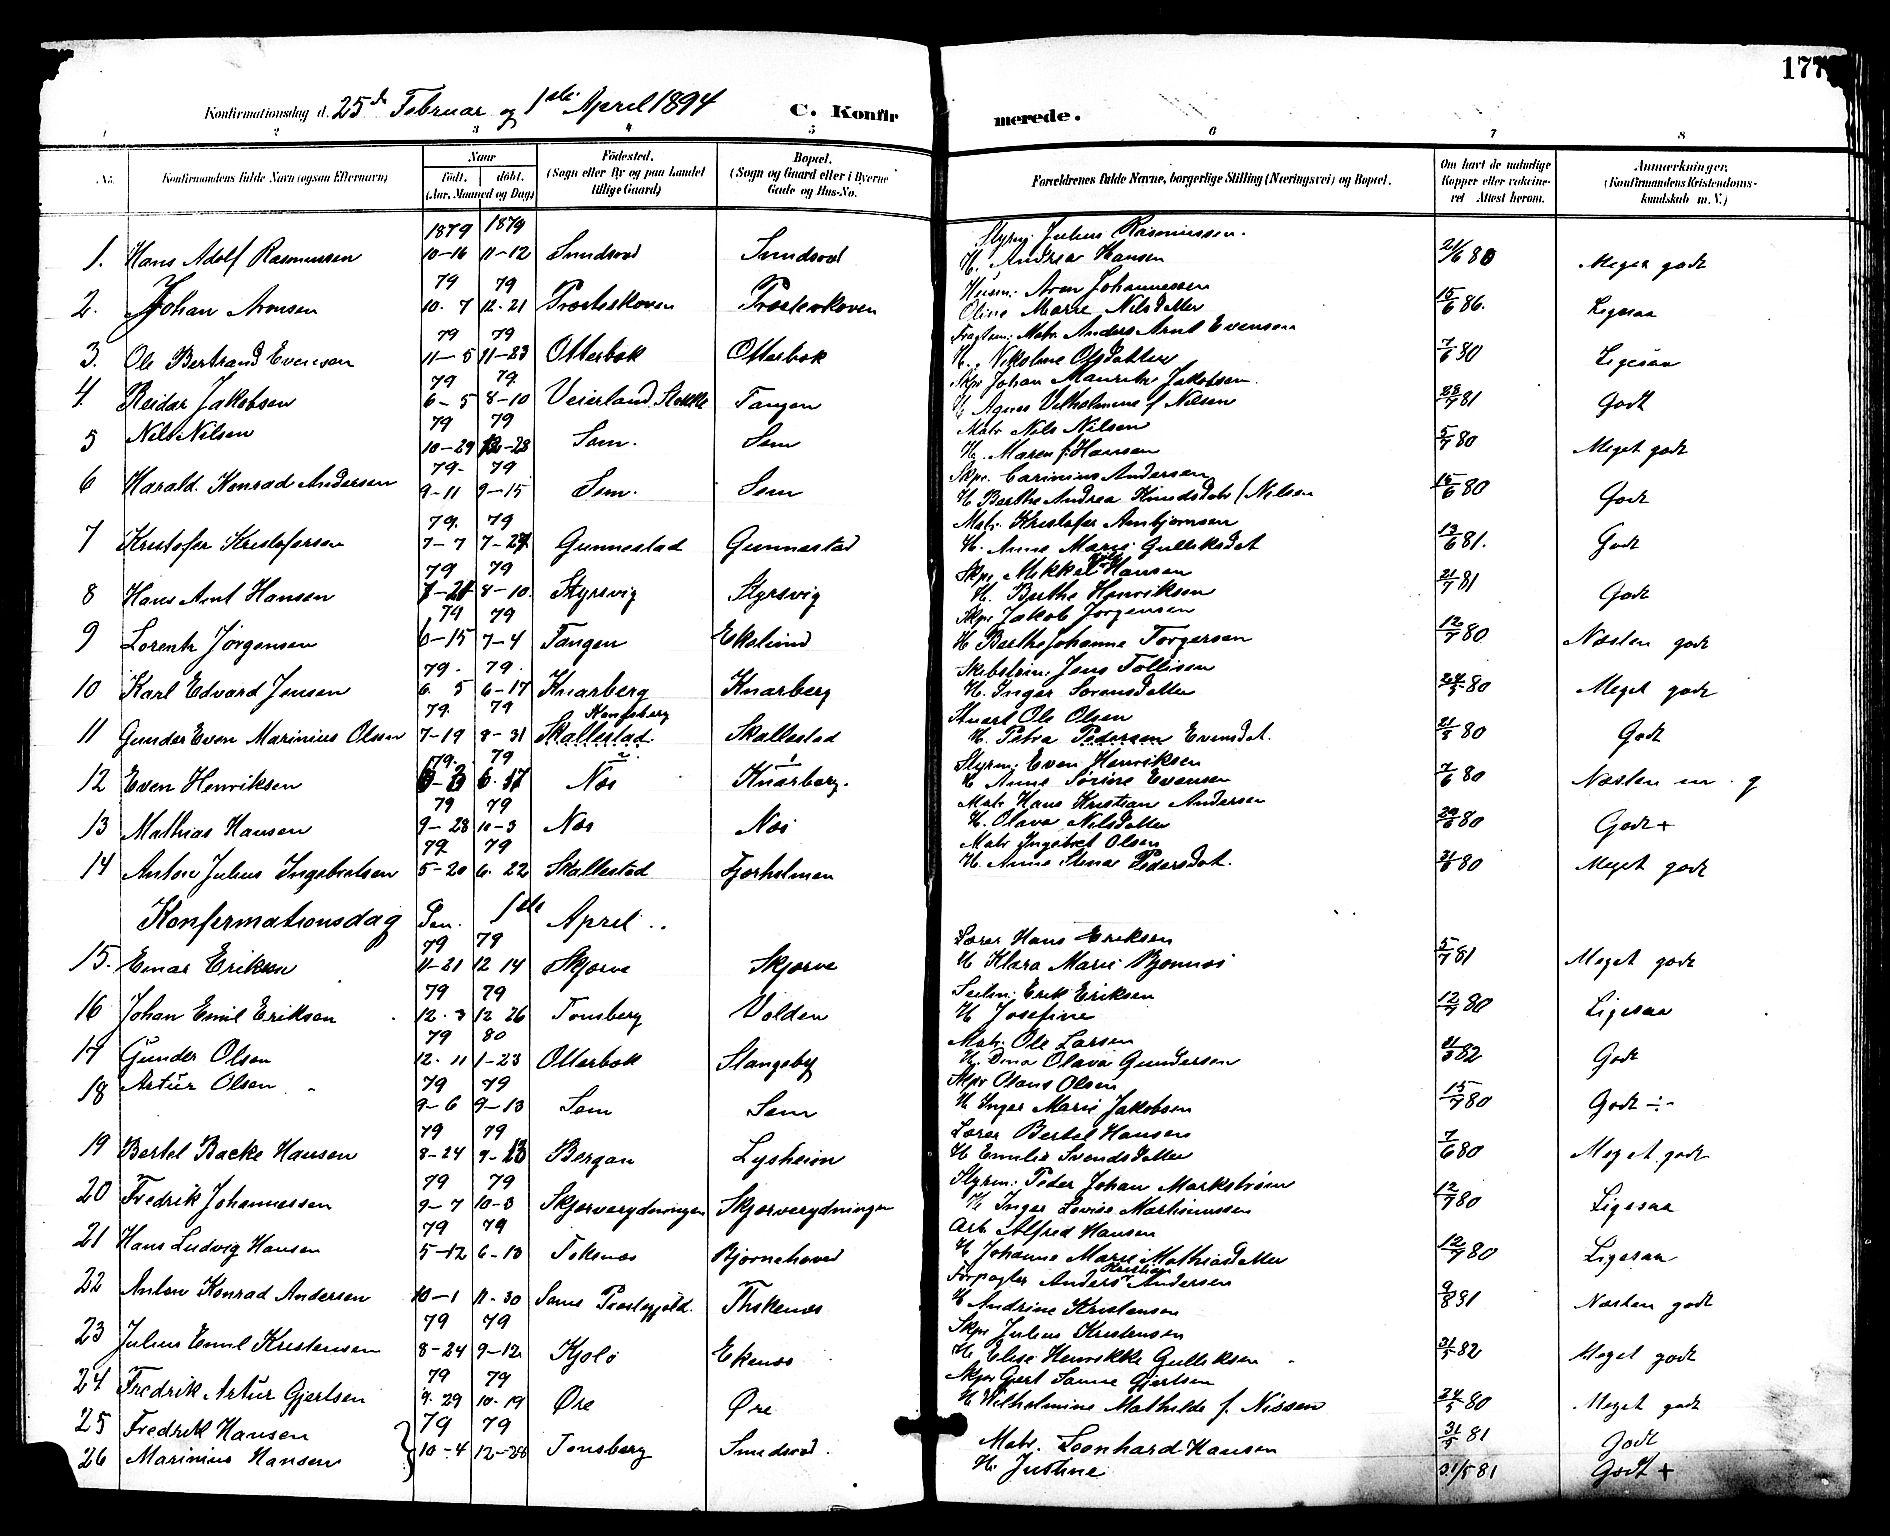 177
Konfirmationsdag d. 25de Februar og 1ste April 1894
C. Konfir merede.
1 2 3 4 5 6 7 8
No. Konfirmandens fulde Navn (ogsaa Efternavn) Naar Født. døbt. (Aar, Maaned og Dag) Fødested. (Sogn eller By og paa Landet tillige Gaard) Bopæl. (Sogn og Gaard eller i Byerne Gade og Hus-No. Forældrenes fulde Navne, borgerlige Stilling (Næringsvei) og Bopæl. Om havt de naturlige Kopper eller vakcineret Attest herom. Anmærkninger. (Konfirmandens Kristendomskundskab m. V.)
1879 1879 Styrm. Julius Rasmussen.
1. Hans Adolf Rasmussen 10-16 11-12 Smidsrød Smidsrød H. Andrea Hansen 21/6 80 Meget godt
79 79 Husm: Aron Johannessen
2. Johan Aronsen 10. 7 12. 21 Præsteskoven Præsteskoven Oline Marie Nilsdatter 15/6 86. Ligesaa
79 79 Fragtem: Matr. Anders Arnt Evensen
3. Ole Bertrand Evensen 11-5 11-23 Otterbæk Otterbæk H. Nikoline Olsdatter 7/6 80 Ligesaa
79 79. Skpr Johan Mauritz Jakobsen.
4. Reidar Jakobsen 6-5 8-10 Veierland, Stokke Tangen H. Agnes Vilhelmine f. Nilsen 28/7 81 Godt
79 79 Matr Nils Nilsen
5 Nils Nilsen 10-29 12-28 Sem. Sem H. Maren f. Hansen 5/7 80 Meget godt
79- 79 Skpr. Carinius Andersen
6 Harald. Konrad Andersen 9-11 9-15 Sem. Sem H. Berthe Andrea Knudsdatr (Nilsen 15/6 80 Godt
79. 79 Matr. Kristofer Arnbjørnsen
7 Kristofer Kristofersen 7-7 7-27 Gunnestad Gunnestad H. Anne Marie Gulleksdat 13/6 81. Godt
79 79 Skpr. Mikkel Hansen
8 Hans Arnt Hansen 7-21 8-10. Styrsvig Styrsvig H. Berthe Henriksen 21/7 81 Godt
79 79 Skpr Jakob Jørgensen
9 Lorentz Jørgensen 6-15 7-4 Tangen Ekelund H Berthe Johanne Torgersen 12/7 80 Næsten godt
79. 79. Skibstøm. Jens Tollisen
10 Karl Edvard Jensen 6. 5 6-17 Knarberg Knarberg H. Inger Sørensdatter 24/5 80 Meget godt
79. 79 Kongsberg Stuart Ole Olsen
11 Gunder Even Marinius Olsen 7-19 8-31 Skallestad. Skallestad H. Petra Pedersen Evensdat. 21/5 80 Godt
79. 79 Styrm: Even Henriksen
12 Even Henriksen 6. 17 Nes Knarberg. H. Anne Sørine Evensen 7/6 80 Næsten m. g
79 79 Matr Hans Kristian Andersen
13 Mathias Hansen 9-28 10-3 Nes Nes H. Olava Nilsdatter 29/6 80 Godt +
79. 79 Matr Ingebret Olsen
14 Anton Julius Ingebretsen 5-20 6. 22 Skallestad Fjerholmen H. Anne Stine Pedersdat. 21/6 80 Meget godt
Konfermationsdag Den. 1ste April ..
79 79 Lærer Hans Eriksen
15. Einar Eriksen 11-21 12 14 Skjerve Skjerve H Klara Marie Bjonnes 5/7 81 Meget godt
79 79 Seilm: Erik Eriksen
16 Johan Emil Eriksen 12. 3 12 26 Tønsberg Volden H Josefine 12/7 80 Ligesaa
79 80 Matr. Ole Larsen
17 Gunder Olsen 12. 11 1-23 Otterbæk Stangeby H. Dina Olava Gundersen 21/3 82 Godt
79 79 Skpr Olaus Olsen
18 Artur Olsen 9-6 9-13 Sem Sem H Inger Marie Jakobsen 15/7 80 Godt ÷
79 79 Lærer Bertel Hansen
19 Bertel Backe Hansen 8-24 9-23 Bergan Lysheim H Emilie Svendsdatter 7/6 80 Meget godt
79 79 Styrm: Peder Johan Markstrøm
20 Fredrik Johannessen 9-7 10-3 Skjerverydningen Skjerverydningen H Inger Lovise Mathiassen 12/7 80 Ligesaa
79 79 Arb. Alfred Hansen
21 Hans Ludvig Hansen 5-12 6-13 Teksnes Bjørnehoved H Johanne Marie Mathiasdatter 12/7 80 Ligesaa
Forpagter Anders Kristian Andersen
22 Anton Konrad Andersen 10-1 11-30 Sems Præstegjeld. H Andrine Kristensen 9/8 91 Næsten godt
79 79 Skpr Julius Kristensen
23 Julius Emil Kristensen 8-24 9-12 Kjøle Ekenes H. Elise Henrikke Gulleksen 21/5 82 Meget godt
79 79 Skpr Gjert Sanne Gjertsen
24 Fredrik Artur Gjertsen 9. 29 10. 19 Øre Øre H Wilhelmine Mathilde f. Nissen 24/5 80 Meget godt
25 Fredrik Hansen 79 79 Matr. Leonhard Hansen 31/5 81 Godt
26 Marinius Hansen 10-4 12-28 Tønsberg Smidsrød. H. Justine 31/5 81 Godt +